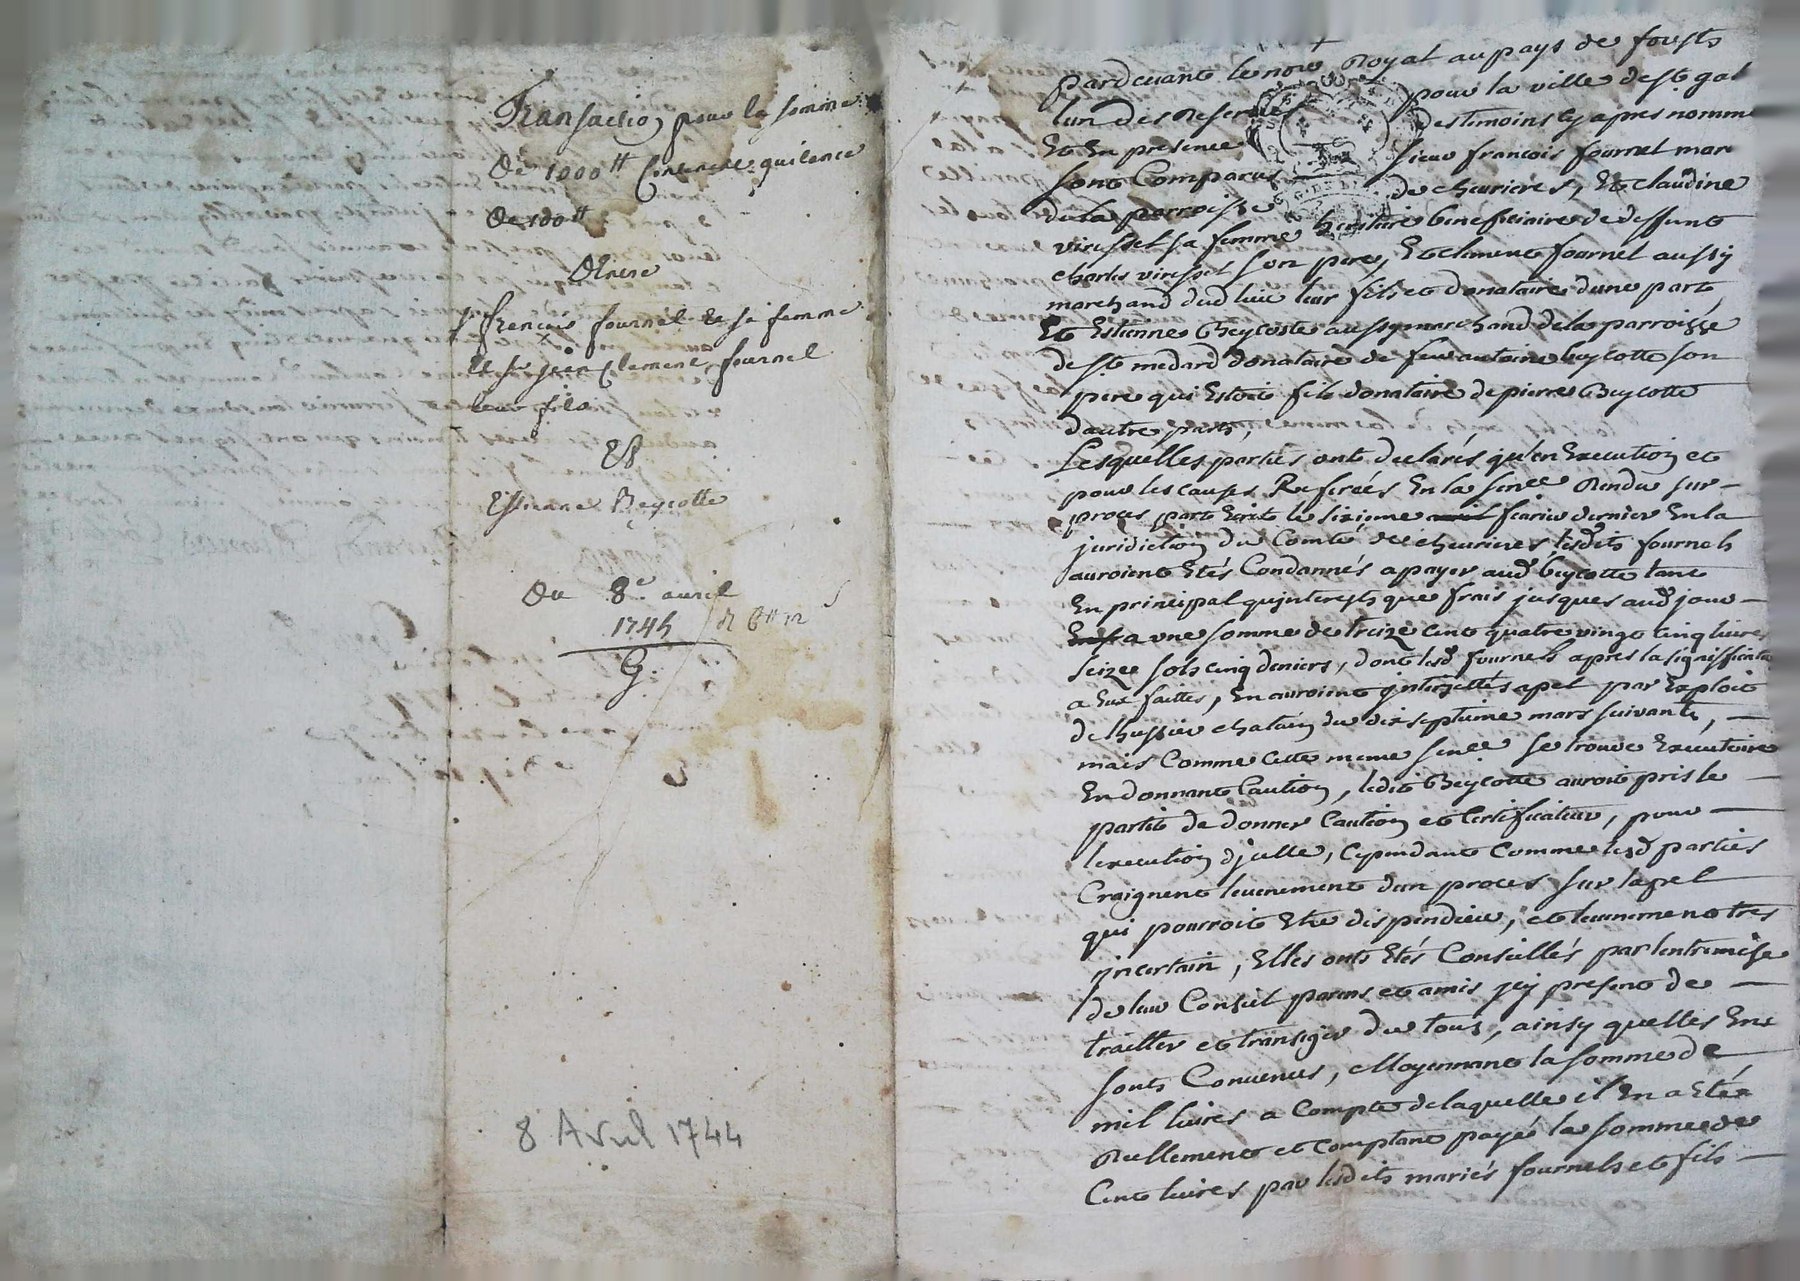 Transaction pour la somme
de 1000tt Contenant quitence
de 100tt
Entre
sr françois fournel & sa femme
et sr jean Clement fournel
leur fils
Et
Estienne Beycotte
Du 8e avril
1744
G.
8 Avril 1744
pardevant le nore Royal au pays de forysts
lun des Reserves pour la ville de st gal
Et En presence des temoins cy apres nomm
sont Comparus sieur francois fournel mar
de la parroisse de chevrieres, Et claudine
viressel sa femme heritiere beneficiaire de deffunt
charles viressel son pere, Et clement fournel aussy
marchand dud lieu leur fils et donataire dune part
Et Estienne Beycotte aussy marchand de la parroisse
de st medard donataire de feu antoine beycotte son
pere qui Estoit fils donataire de pierre Beycotte
dautre part,
Lesquelles parties ont declarés qu'en Execution et
pour les causes Referées En la sence Rendu sur
proces part Ecrit le sixieme avril fevrier dernier En la
juridiction du Comté de chevrieres lesdits fournels
auroient Etés Condannés a payer aud beycotte tant
En principal qu'interests que frais jusques aud jour
a une somme de treize cent quatre vingt cinq livres
seize sols cinq deniers, dont lesd fournels apres la signiffication
a Eux faittes, En auroient jnterjettés apel par Exploit
de hussier chatain du dix septieme mars suivant,
mais Comme cette meme sence se trouve Executoire
En donnant Caution, ledit Beycotte auroit pris le
partit de donner Caution et Certificateur, pour
lexecution djcelle, Cependant Comme lesd parties
Craignent levenement dun proces sur lapel
qui pourroit Etre dispendieux, et levenement tres
jncertain, Elles onts Etés Conseillés par lentremise
de leur Conseil parans et amis jcy present de
traitter et transiger du tout, ainsy quelles En
sonts Convenues, Moyennant la somme de
mil livres a Compte de laquelle il En a Eté
Reellement et comptant payé la somme de
Cent livres par lesdits mariés fournels et fils